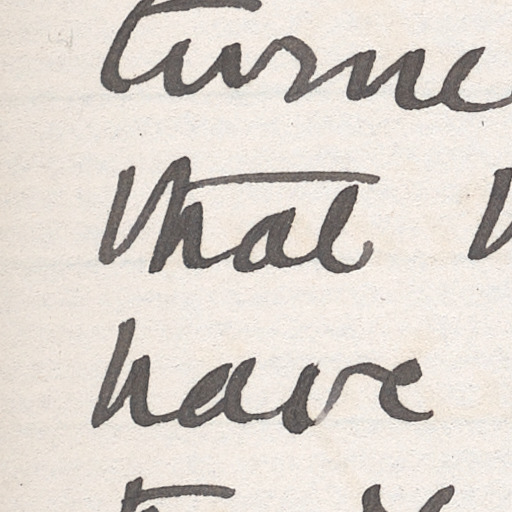 turne
that
have